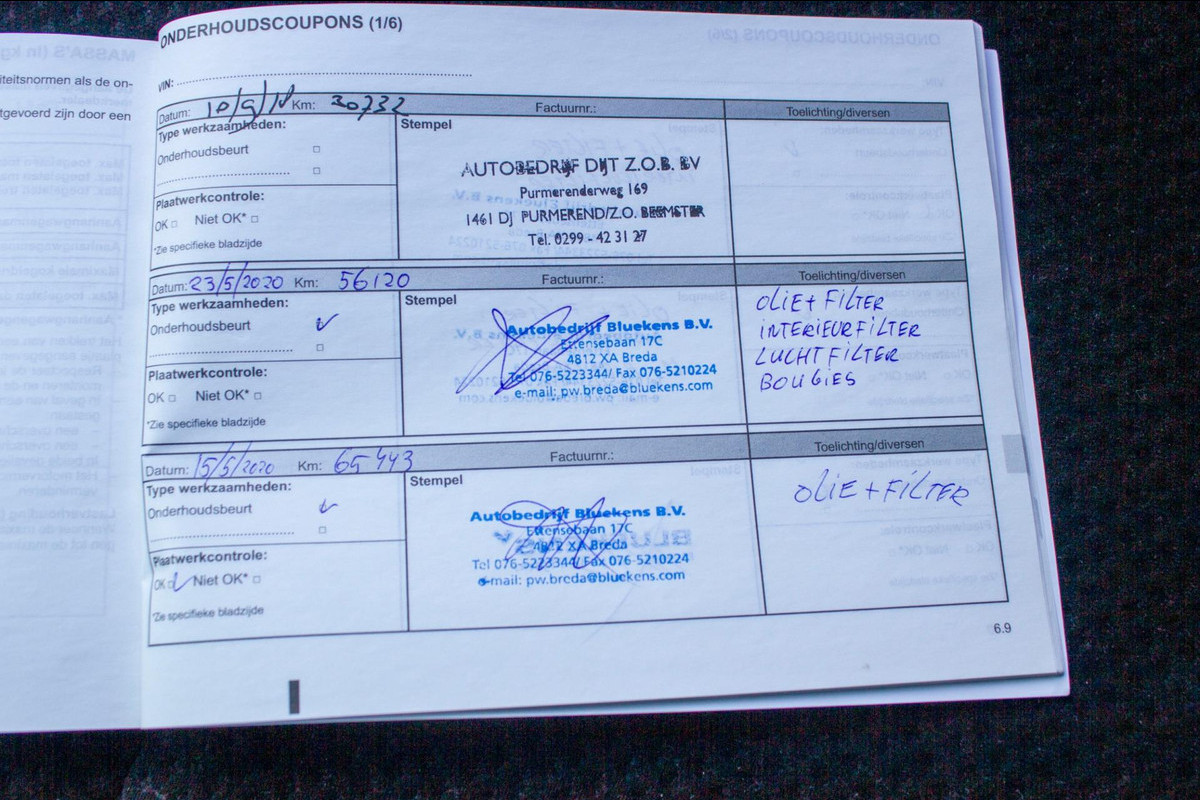 iteitsnormen als de on-
tgevoerd zijn door een
ONDERHOUDSCOUPONS (1/6)
VIN:
Datum: 10/9/18 Km: 30732 Factuurnr.: Toelichting/diversen
Type werkzaamheden:
Stempel
Onderhoudsbeurt
Plaatwerkcontrole:
OK Niet OK*
*Zie specifieke bladzijde
AUTOBEDRIJF DIJT Z.O.B. BV
Purmerenderweg 169
1461 DJ PURMEREND/Z.O. BEEMSTER
Tel. 0299 - 42 31 27
Datum: 23/5/2020 Km: 56120 Factuurnr.: Toelichting/diversen
Type werkzaamheden:
Stempel
Onderhoudsbeurt
Plaatwerkcontrole:
OK Niet OK*
*Zie specifieke bladzijde
Autobedrijf Bluekens B.V.
Ettensebaan 17C
4812 XA Breda
Tel 076-5223344/ Fax 076-5210224
e-mail: pw.breda@bluekens.com
OLIE + FILTER
INTERIEURFILTER
LUCHTFILTER
BOUGIES
Datum: 15/5/2020 Km: 65443 Factuurnr.: Toelichting/diversen
Type werkzaamheden:
Stempel
Onderhoudsbeurt
Plaatwerkcontrole:
OK Niet OK*
*Zie specifieke bladzijde
Autobedrijf Bluekens B.V.
Ettensebaan 17C
4812 XA Breda
Tel 076-5223344/ Fax 076-5210224
e-mail: pw.breda@bluekens.com
OLIE + FILTER
6.9